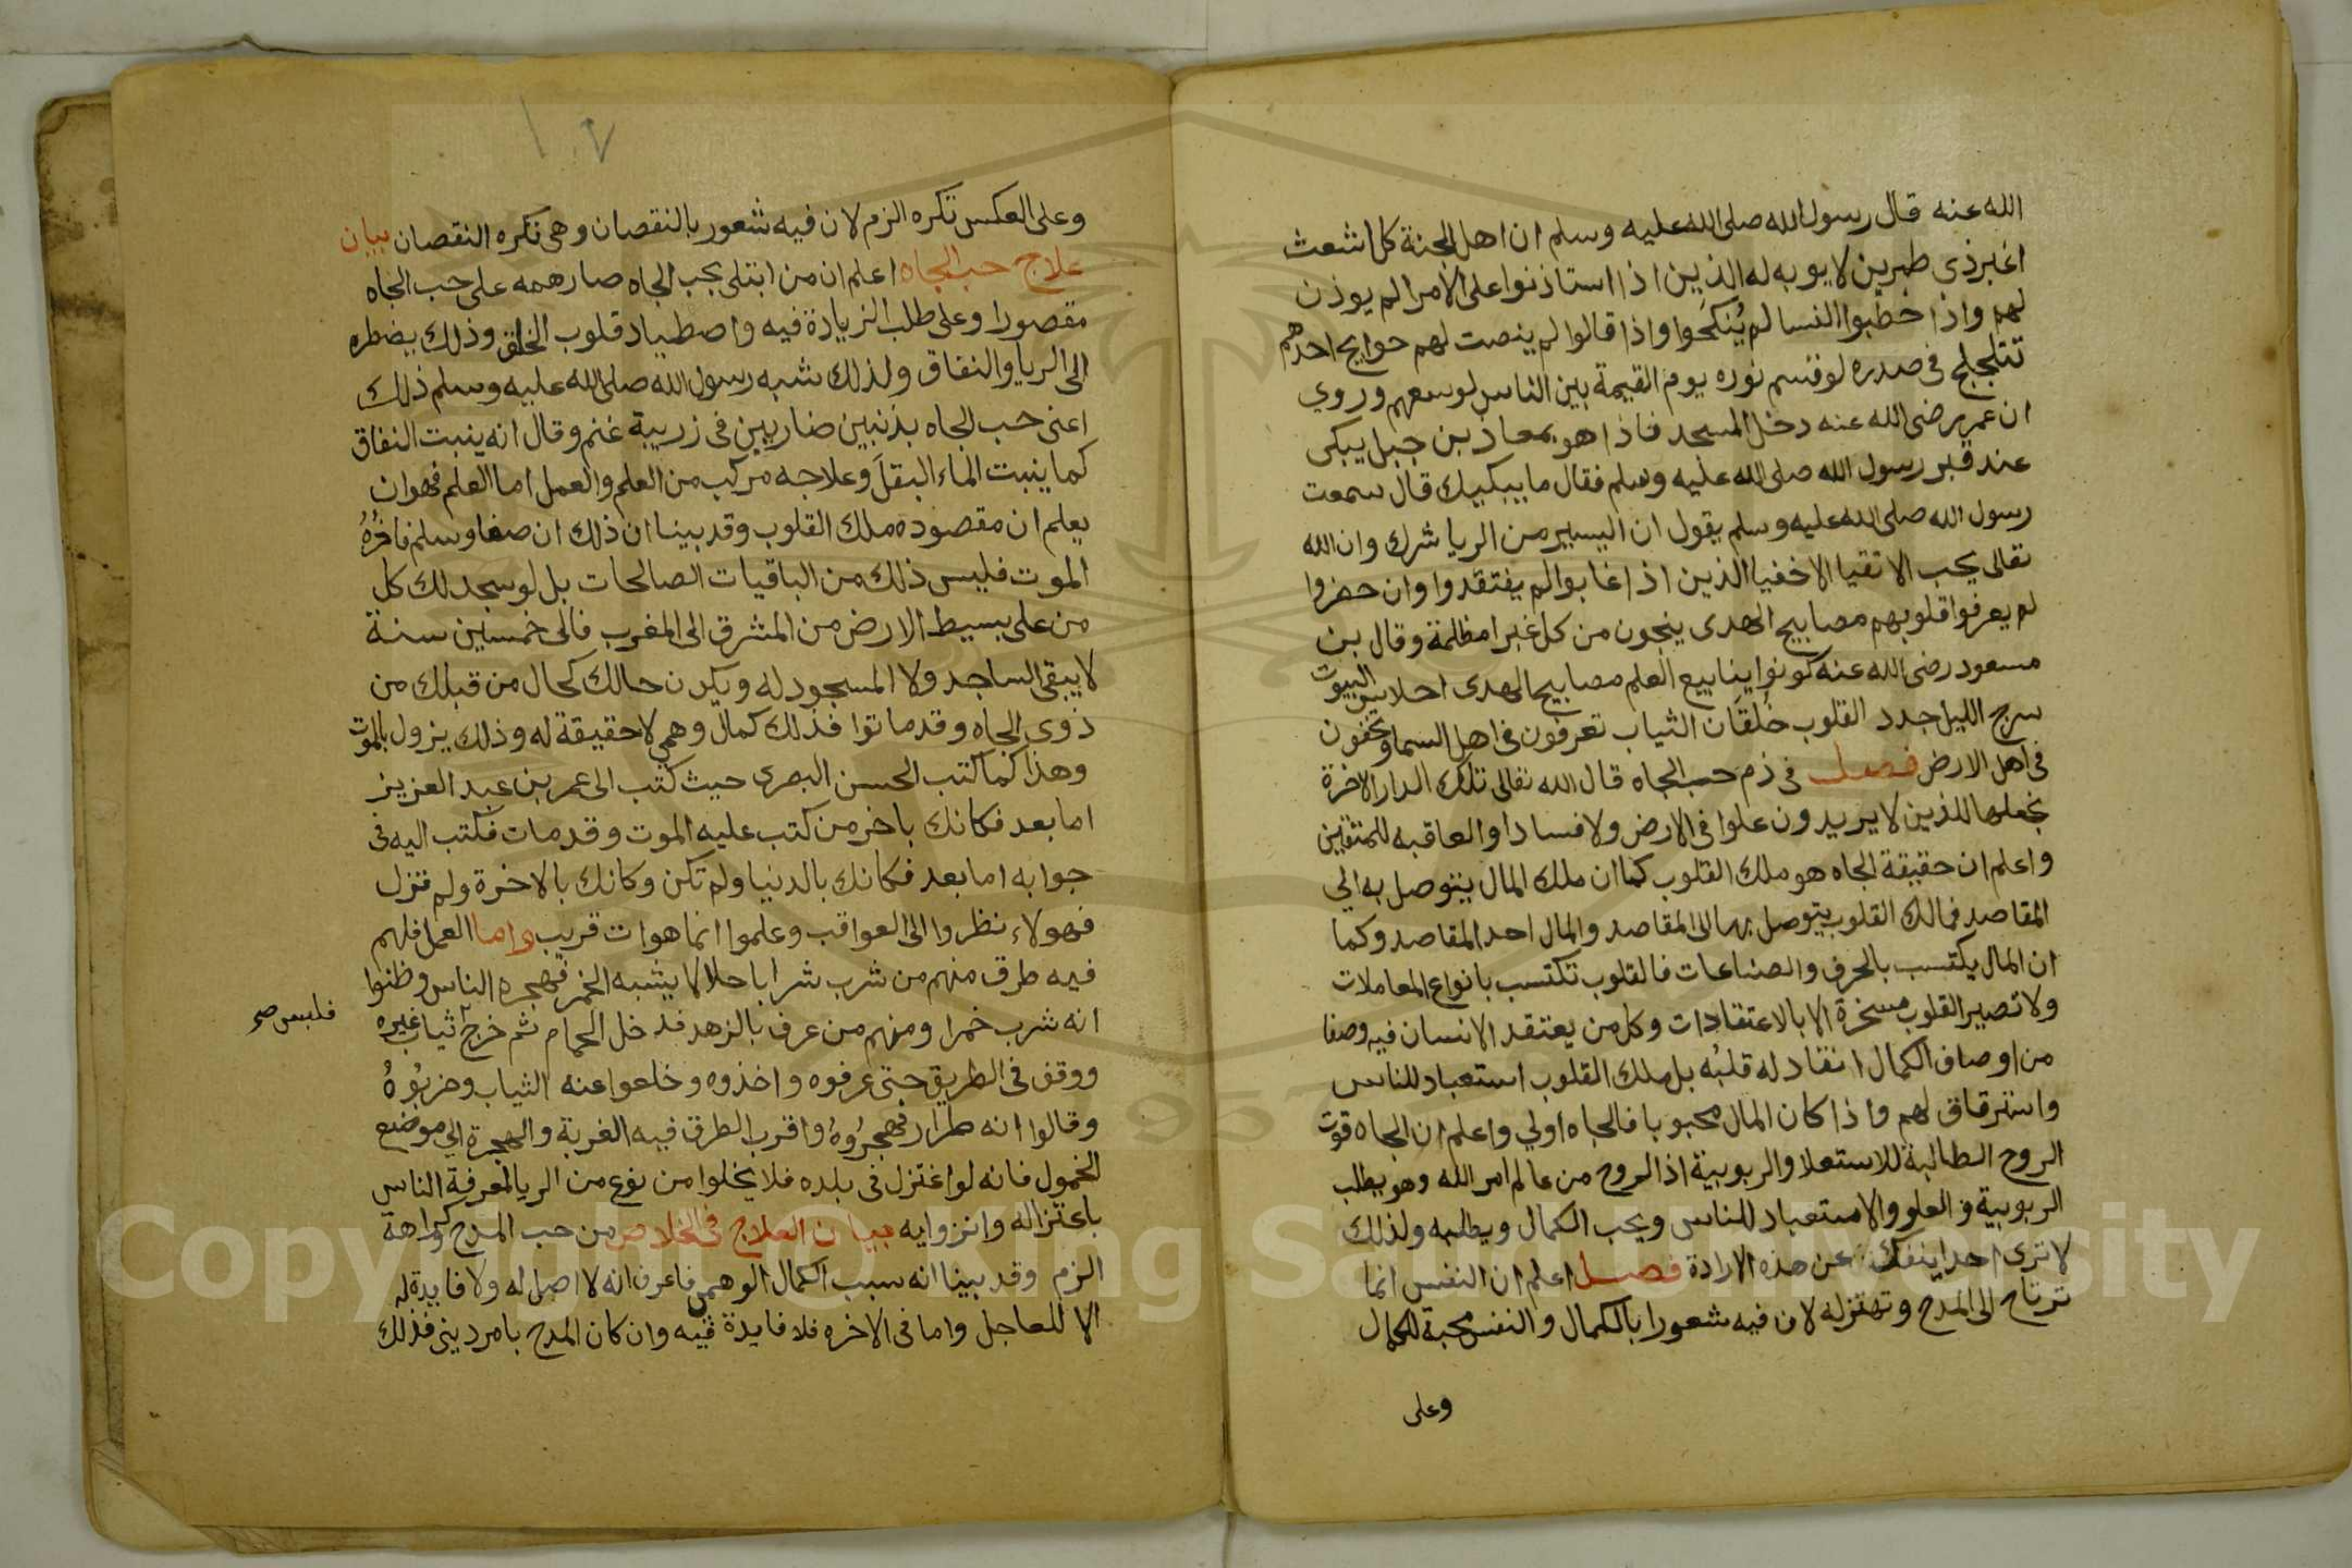 الله عنه قال رسول الله صلى الله عليه وسلم ان اهل الجنة كل اشعث
اغبر ذى طمرين لا يوبه له الذين اذا استاذنوا على الامرا لم يوذن
لهم واذا خطبوا النسا لم يُنكَحوا واذا قالوا لم ينصت لهم حوايج احدهم
تتلجلج فى صدره لو قسم نوره يوم القيمة بين الناس لوسعهم وروي
ان عمر رضى الله عنه دخل المسجد فاذا هو بمعاذ بن جبل يبكى
عند قبر رسول الله صلى الله عليه وسلم فقال ما يبكيك قال سمعت
رسول الله صلى الله عليه وسلم يقول ان اليسير من الريا شرك وان الله
تعالى يحب الاتقيا الاخفيا الذين اذا غابوا لم يفتقدوا وان حضروا
لم يعرفوا قلوبهم مصابيح الهدى ينجون من كل غبرا مظلمة وقال بن
مسعود رضى الله عنه كونوا ينابيع العلم مصابيح الهدى احلاس البيوت
سرج الليل جدد القلوب خُلقَان الثياب تعرفون فى اهل السما وتخفون
فى اهل الارض فصل فى ذم حب الجاه قال الله تعالى تلك الدار الاخرة
نجعلها للذين لا يريدون علوا فى الارض ولا فسادا والعاقبه للمتقين
واعلم ان حقيقة الجاه هو ملك القلوب كما ان ملك المال يتوصل به الي
المقاصد فمالك القلوب يتوصل بها الى المقاصد والمال احد المقاصد وكما
ان المال يكتسب بالحرف والصناعات فالقلوب تكتسب بانواع المعاملات
ولا تصير القلوب مسخرة الا بالاعتقادات وكل من يعتقد الانسان فيه وصفا
من اوصاف الكمال انقاد له قلبُه بل ملك القلوب استعباد للناس
واسترقاق لهم واذا كان المال محبوبا فالجاه اولي واعلم ان الجاه قوت
الروح الطالبة للاستعلا والربوبية اذ الروح من عالم امر الله وهو يطلب
الربوبية والعلو والاستعباد للناس ويحب الكمال ويطلبه ولذلك
لا ترى احدا ينفك عن هذه الارادة فصل اعلم ان النفس انما
ترتاح الى المدح وتهتز له لان فيه شعورا بالكمال والنفس محبة للكمال
وعلى
١٠٧
وعلى العكس تكره الزم لان فيه شعور بالنقصان وهى تكره النقصان بيان
علاج حب الجاه اعلم ان من ابتلى بحب الجاه صار همه على حب الجاه
مقصورا وعلى طلب الزيادة فيه واصطياد قلوب الخلق وذلك يضطره
الى الريا والنفاق ولذلك شبه رسول الله صلى الله عليه وسلم ذلك
اعنى حب الجاه بذئبين ضاريين فى زريبة غنم وقال انه ينبت النفاق
كما ينبت الماء البقل وعلاجه مركب من العلم والعمل اما العلم فهو ان
يعلم ان مقصوده ملك القلوب وقد بينا ان ذلك ان صفا وسلم فاخُرهُ
الموت فليس ذلك من الباقيات الصالحات بل لو سجد لك كل
من على بسيط الارض من المشرق الى المغرب فالى خمسين سنة
لا يبقى الساجد ولا المسجود له ويكون حالك كحال من قبلك من
ذوى الجاه وقد ماتوا فذلك كمال وهمي لا حقيقة له وذلك يزول بالموت
وهذا كما كتب الحسن البصرى حيث كتب الى عمر بن عبد العزيز
اما بعد فكانك باخر من كتب عليه الموت وقد مات فكتب اليه فى
جوابه اما بعد فكانك بالدنيا ولم تكن وكانك بالاخرة ولم تزل
فهولاء نظروا الى العواقب وعلموا انما هو ات قريب واما العمل فلهم
فيه طرق منهم من شرب شرابا حلالا يشبه الخمر فهجره الناس وظنوا
انه شرب خمرا ومنهم من عرف بالزهد فدخل الحمام ثم خرج ثياب غيره
فلبس صح
ووقف فى الطريق حتى عرفوه واخذوه وخلعوا عنه الثياب وضربُوهُ
وقالوا انه طرار فهجرُوهُ واقرب الطرق فيه الغربة والهجرة الي موضع
الخمول فانه لو اعتزل فى بلده فلا يخلوا من نوع من الريا لمعرفة الناس
باعتزاله وانزوايه بيان العلاج فى الخلاص من حب المدح وكراهة
الزم وقد بينا انه سبب الكمال الوهمى فاعرف انه لا اصل له ولا فايدة له
الا للعاجل واما فى الاخره فلا فايدة فيه وان كان المدح بامر دينى فذلك
Copyright © King Saud University
1957